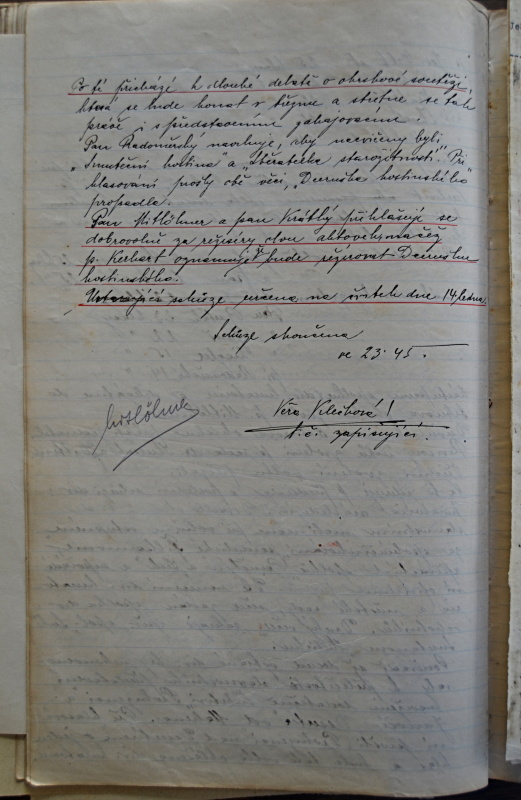 Po té přichází k dlouhé debatě o okrskové soutěži,
která se bude konat v březnu a střetne se tak
práce i s představením zahajovacím.
Pan Radoměrský navrhuje, aby nacvičeny byly
"Smuteční hostina" a "Sběratelka starožitností". Při
hlasování prošly obě věci, "Dcerušku hostinského"
propadla.
Pan Mitlöhner a pan Krátký přihlašují se
dobrovolně za režiséry dvou aktovek, načež
p. Kerhart oznamuje, že bude režírovat Dcerušku
hostinského.
schůze určena na čtvrtek dne 14. ledna.
Schůze skončena
ve 23.45.
Věra
t.č. zapisující.